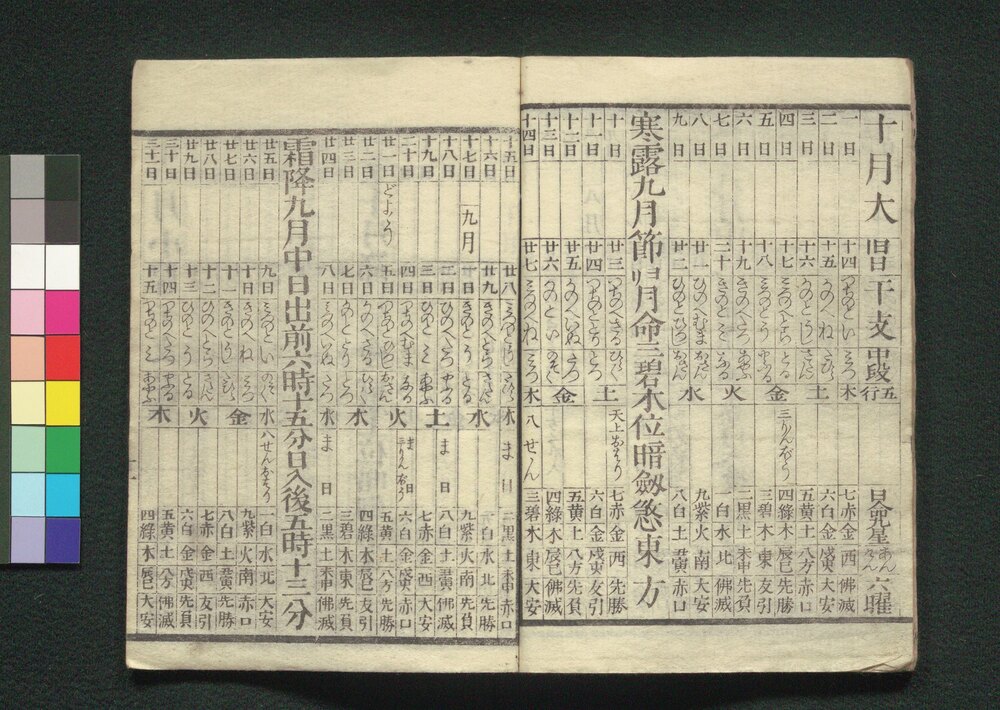 十月大 旧日 干支 中段 五行 日九星 あんけん 六曜
一日 十四 つちのとい みつ 木 七赤金 西 佛滅
二日 十五 かのえね たつ 土 六白金 戌亥 大安
三日 十六 かのとうし 五黄土 八方 赤口
四日 十七 みづのえとら とる 金 三りんぼう 四緑木 辰巳 先勝
五日 十八 みづのとう やぶる 三碧木 東 友引
六日 十九 きのえたつ あやぶ 火 二黒土 未申 先負
七日 二十 きのとみ 一白水 北 佛滅
八日 廿一 ひのえむま 水 九紫火 南 大安
九日 廿二 ひのとひつじ 八白土 丑寅 赤口
寒露九月節 明月命三碧木位暗劔煞東方
十日 廿三 つちのえさる ひらく 土 天上おわり 七赤金 西 先勝
十一日 廿四 つちのととり とづ 六白金 戌亥 友引
十二日 廿五 かのえいぬ たつ 金 五黄土 八方 先負
十三日 廿六 かのとい のぞく 四緑木 辰巳 佛滅
十四日 廿七 みづのえね みつ 木 八せん 三碧木 東 大安
十五日 廿八 みづのとうし 木 ま日 二黒土 未申 赤口
十六日 廿九 きのえとら さだん 水 一白水 北 先勝
十七日 九月 一日 きのとう とる 九紫火 南 先負
十八日 二日 ひのえたつ やぶる 土 ま日 八白土 丑寅 佛滅
十九日 三日 ひのとみ あやぶ 七赤金 西 大安
二十日 四日 つちのえむま なる 火 ま日 三りんぼう 六白金 戌亥 赤口
廿一日 どよう 五日 つちのとひつじ 五黄土 八方 先勝
廿二日 六日 かのえさる ひらく 木 四緑木 辰巳 友引
廿三日 七日 かのととり とづ 三碧木 東 先負
廿四日 八日 みづのえいぬ たつ 水 ま日 二黒土 未申 佛滅
霜降九月中日出前六時十五分日入後五時十三分
廿五日 九日 みづのとい のぞく 水 八せんおわり 一白水 北 大安
廿六日 十日 きのえね みつ 金 九紫火 南 赤口
廿七日 十一 きのとうし 八白土 丑寅 先勝
廿八日 十二 ひのえとら さだん 火 七赤金 西 友引
廿九日 十三 ひのとう とる 六白金 戌亥 先負
三十日 十四 つちのえたつ やぶる 木 五黄土 八方 佛滅
三十一日 十五 つちのとみ あやぶ 四緑木 辰巳 大安